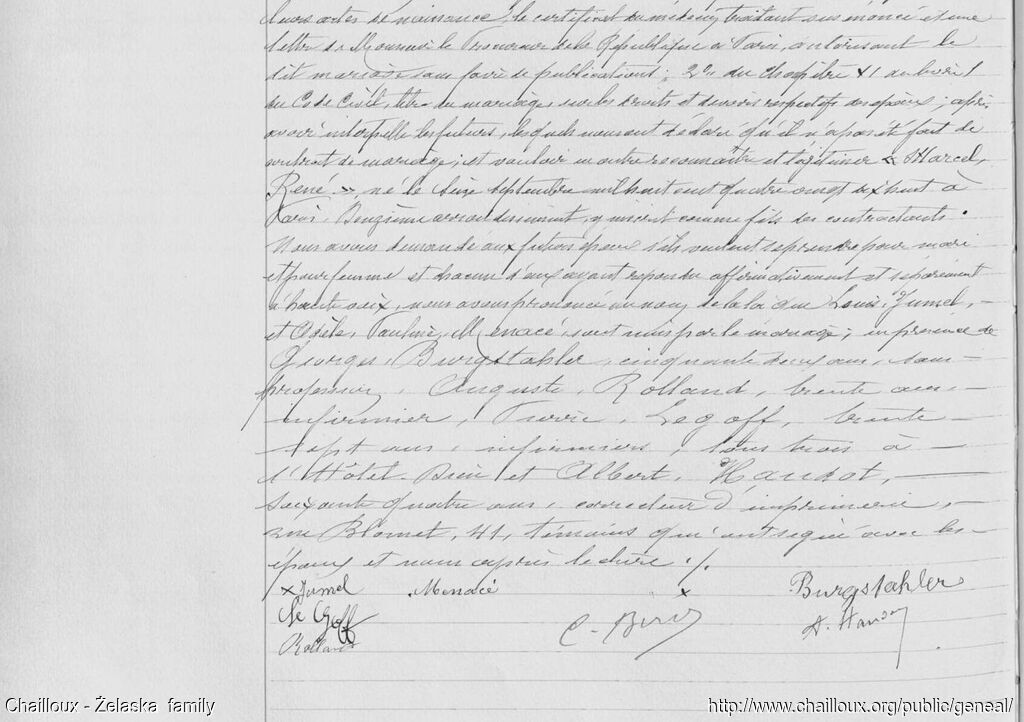 leurs actes de naissance, le certificat du médecin traitant sus énoncé et une
lettre de Monsieur le Procureur de la République à Paris, autorisant le
dit mariage sans faire de publications; 2° du chapitre VI du livre I
du Code Civil, titre du mariage, sur les droits et devoirs respectifs des époux; après
avoir interpellé les futurs, lesquels nous ont déclaré qu'il n'a pas été fait de
contrat de mariage; et vouloir en outre reconnaître et légitimer Marcel,
René né le seize septembre mil huit cent quatre vingt dix huit à
Paris, arrondissement, inscrit comme fils des contractants.
Nous avons demandé aux futurs époux s'ils veulent se prendre pour mari
et pour femme et chacun d'eux ayant répondu affirmativement et séparément
à haute voix, nous avons prononcé au nom de la loi que Louis, Jumel, –
et Adèle, Pauline, Menacé, sont unis par le mariage; en présence de
Georges, Burgstahler, cinquante deux ans, sans –
profession, Auguste, Rolland, trente ans, –
infirmier, Pierre, Le goff, trente –
sept ans, infirmiers, tous trois à –
l'Hôtel-Dieu et Albert, Haudot, –
soixante quatre ans, correcteur d'imprimerie, –
rue Blomet, 41, témoins qui ont signé avec les
époux et nous après lecture ./.
x Jumel Menacé x Burgstahler
Le Goff C. A.
Rolland
Chailloux - Želaska family http://www.chailloux.org/public/geneal/